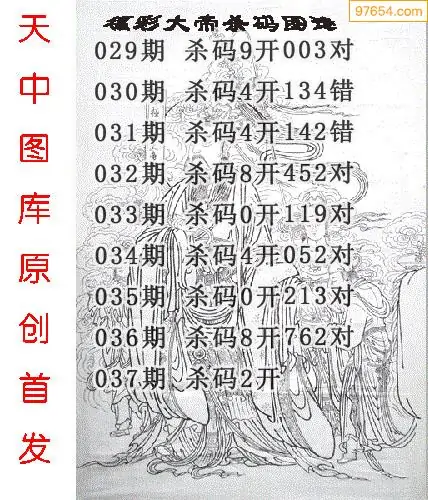 97654.com
福彩大帝杀码图谜
029期 杀码9开003对
030期 杀码4开134错
031期 杀码4开142错
032期 杀码8开452对
033期 杀码0开119对
034期 杀码4开052对
035期 杀码0开213对
036期 杀码8开762对
037期 杀码2开
天中图库原创首发